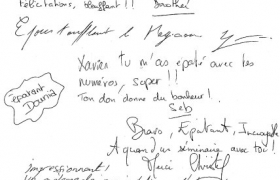 félicitations, bluffant!! Brother
Epoustouflant le Magicien
Xavier tu m'as épaté avec tes
numéros, super!!
Ton don donne du bonheur!
Seb
épatant
Bravo, Epatant, Incroyable
A quand un séminaire avec toi!
impressionnant!
Merci Christel